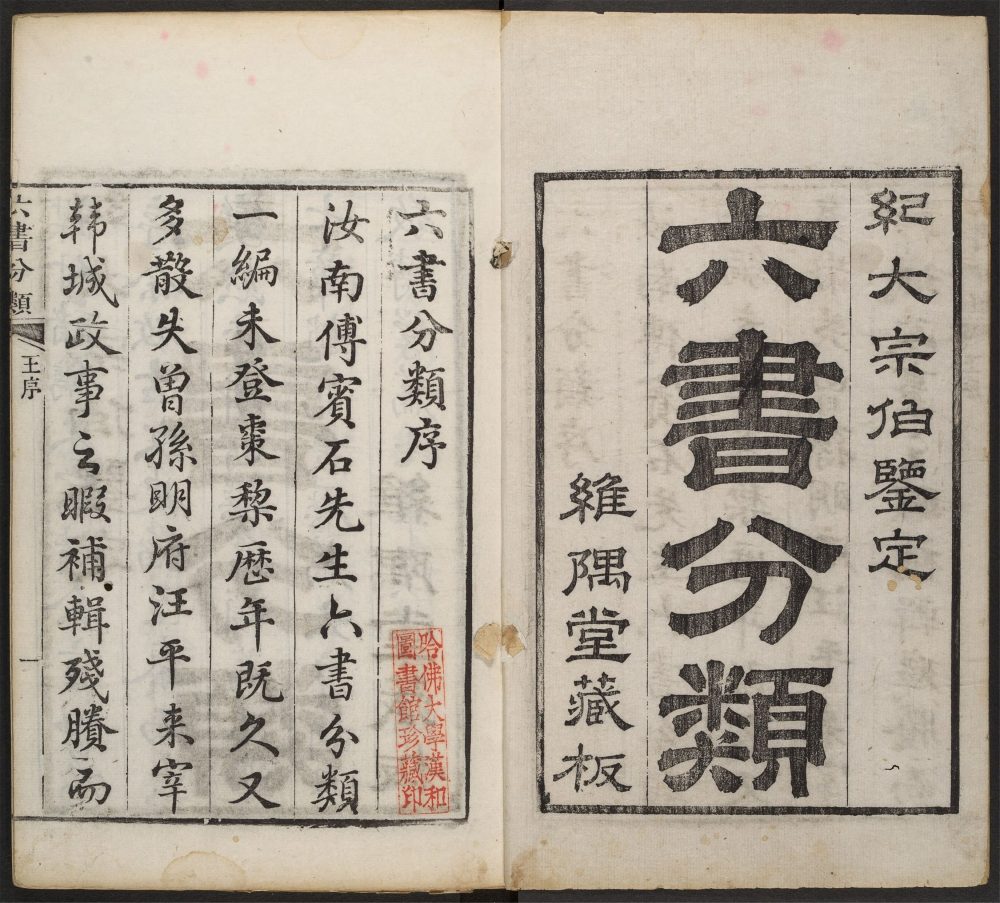 紀大宗伯鑒定
六書分類
維隅堂藏板
六書分類序
汝南傅賓石先生六書分類
一編未登棗梨歷年既久又
多散失曾孫明府汪平来宰
韩城政事之暇補輯殘賸而
哈佛大學漢和
圖書館珍藏印
六書分類
王序
一